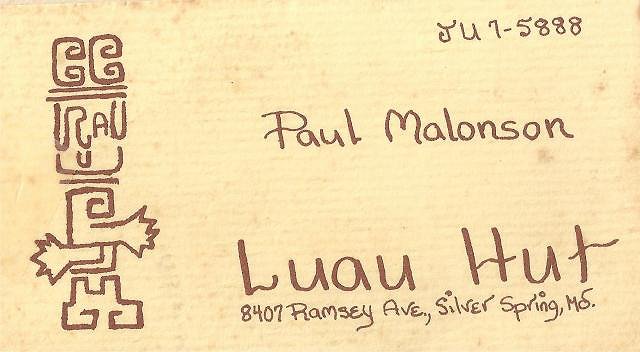 JU 7-5888
Paul Malonson
Luau Hut
8407 Ramsey Ave., Silver Spring, Md.